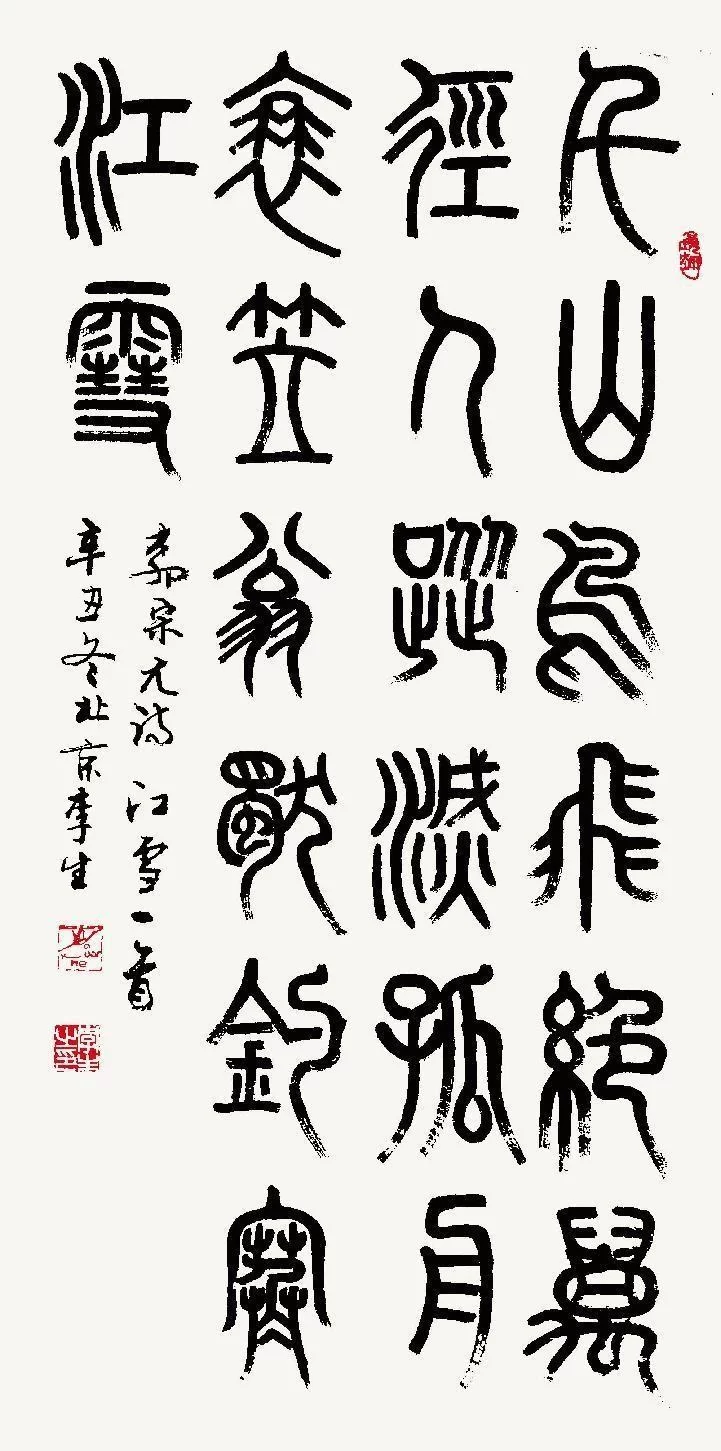 千山鳥飛絕萬
徑人蹤滅孤舟
蓑笠翁獨釣寒
江雪
柳宗元诗江雪一首
辛丑冬北京李生